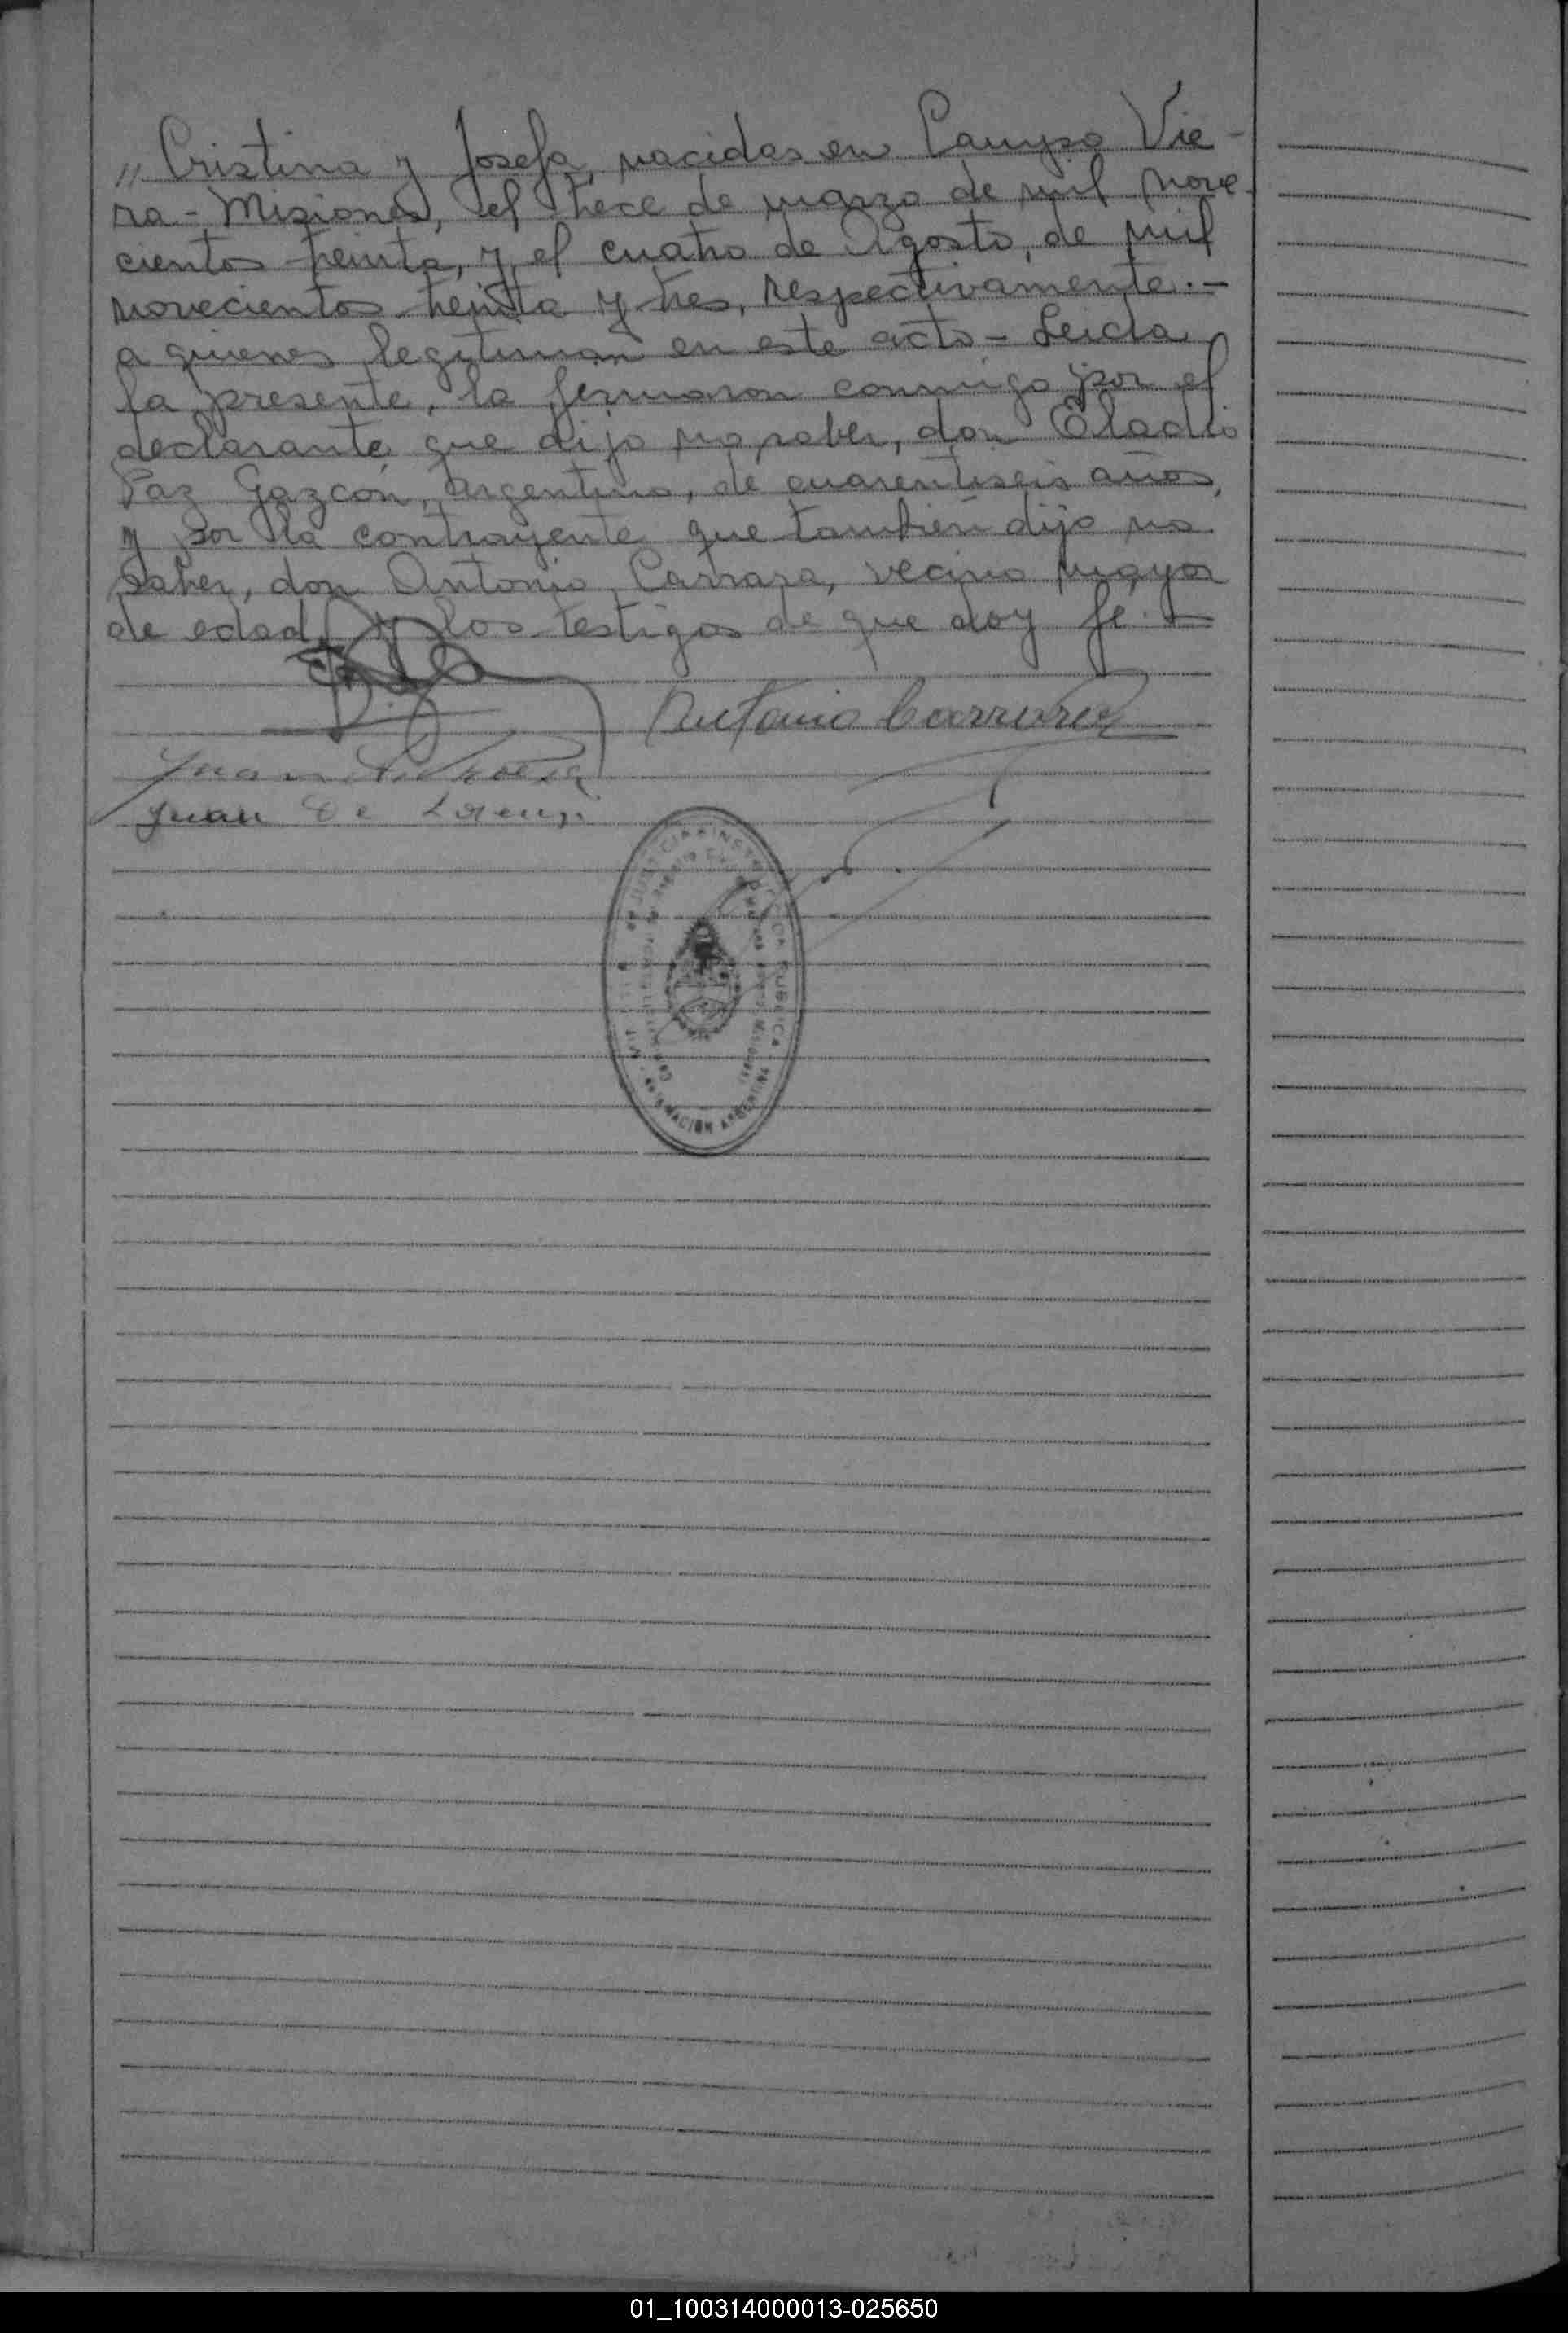 " Cristina y Josefa, nacidas en Campo Vie-
ra - Misiones, el trece de marzo de mil nove-
cientos treinta, y el cuatro de Agosto, de mil
novecientos treinta y tres, respectivamente.-
a quienes legitiman en este acto - Leida
la presente, la firmaron conmigo por el
declarante que dijo no saber, don Eladio
Paz Gazcón, argentino, de cuarentiseis años,
y por la contrayente que tambien dijo no
saber, don Antonio Carrara, vecino mayor
de edad, y los testigos de que doy fe.-
Antonio Carrara
Juan
Juan De Lorenzi
JUSTICIA E INSTRUCCION PUBLICA
NACION ARGENTINA
01_100314000013-025650